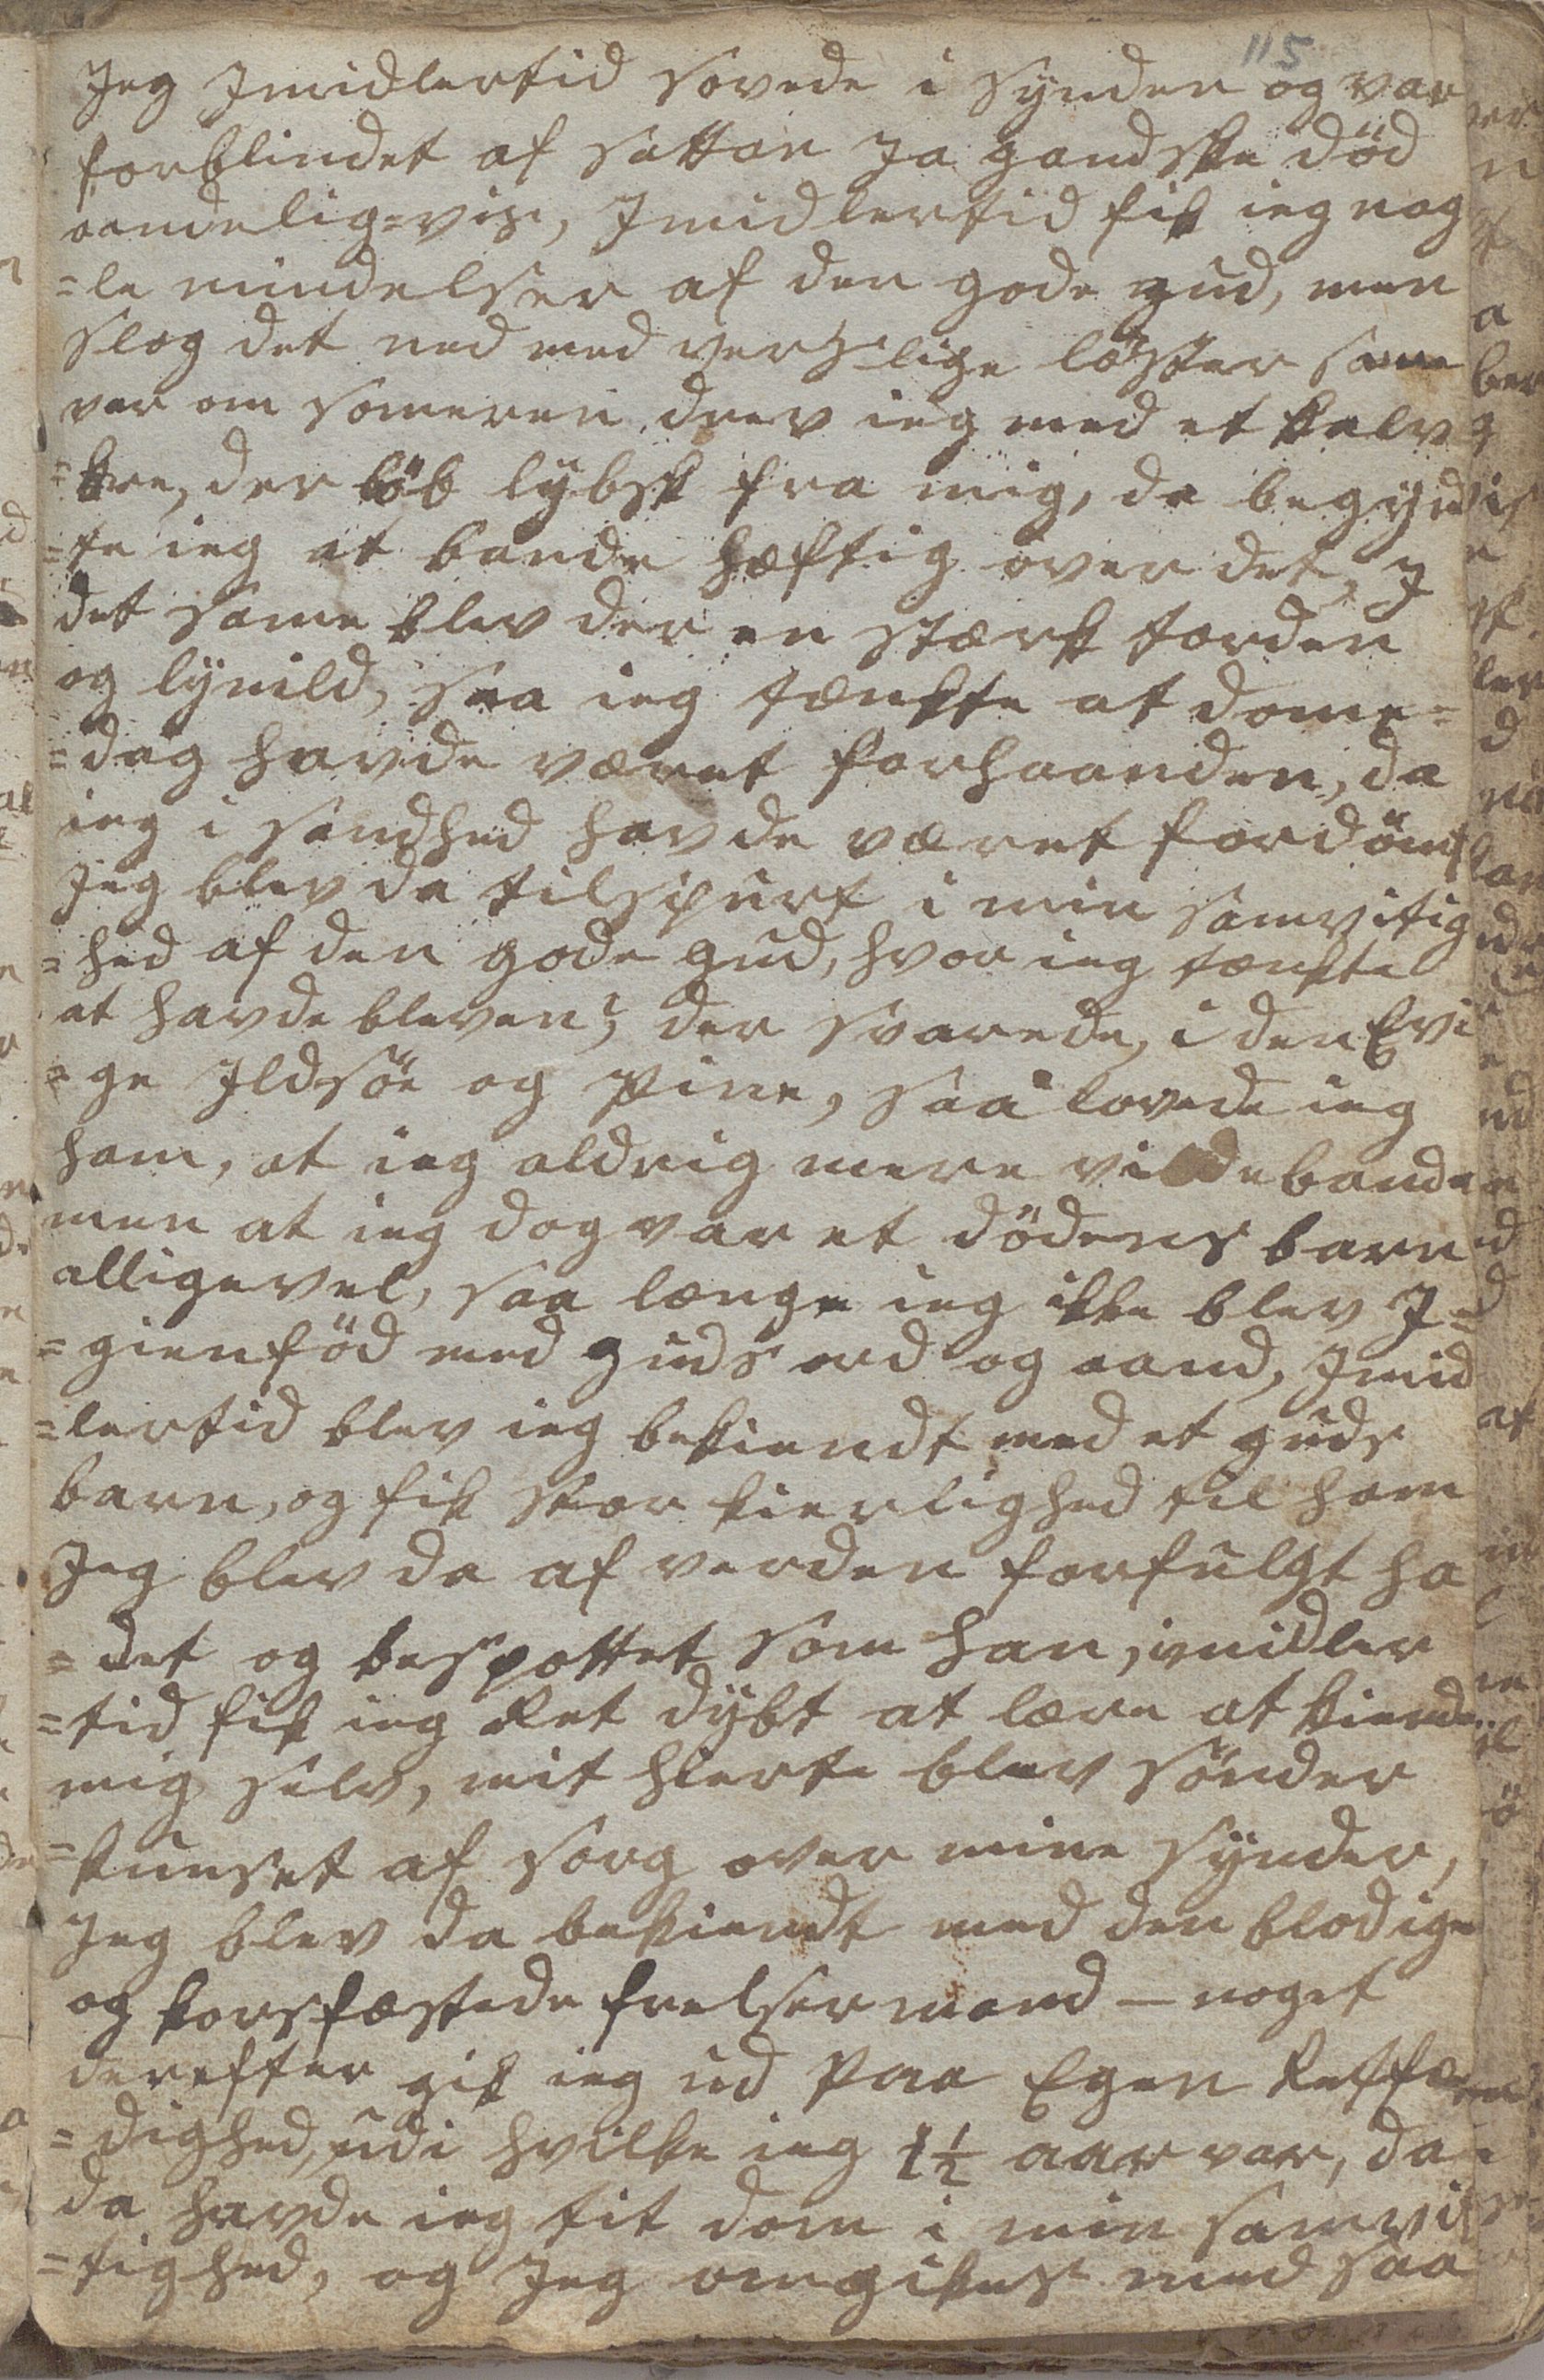 115
Jeg Imidlertid sovede i synden og var
forblindet af sattan Ja gandske död
aandelig=vis, Imidlertid fik ieg nog
=le mindelser af den gode gud, men
slog det ned med verslige löster same
var om someren drev ieg med et
der löb lybsk fra mig, da begynd
=te ieg at bande hæftig over det, I
det same blev der en stærk torden
og lynild, saa ieg tænkte at dome=
=dag havde været forhaanden, da
ieg i sandhed havde været fordömt
Jeg blev da tilspurt i min samvitig
=hed af den gode gud, hvor ieg tænkte
at havde bleven?, der svarede, i den Evi
=ge Ildsöe og Pine, saa lovede ieg
ham, at ieg aldrig mere vilde bande
men at ieg dog var et dödens barn
alligevel, saa længe ieg ikke blev I=
=gienföd med guds ord og aand, Imid
=lertid blev ieg bekiendt med et guds
barn, og fik stor kierlighed til ham
Jeg blev da af verden forfulgt ha
=det og bespottet som han, imidler
=tid fik ieg Ret dybt at lære at kiende
mig selv, mit hierte blev sönder
=knuset af sorg over mine synder,
Jeg blev da bekiendt med den blodige
og korsfæstede frelsermand — noget
derefter gik ieg ud paa Egen Retfær
=dighed, udi hvilke ieg 1½ aar var, da
da havde ieg tit dom i min samvit
=tighed, og Jeg omgikes med saa